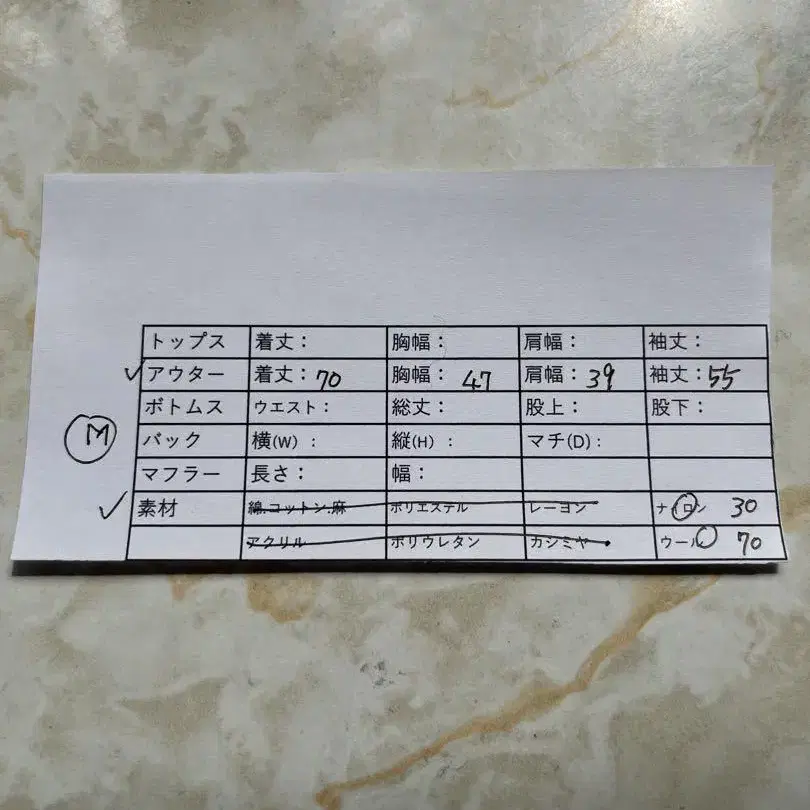 トップス 着丈： 胸幅： 肩幅： 袖丈：
✓ アウター 着丈：70 胸幅： 47 肩幅：39 袖丈：55
ボトムス ウエスト： 総丈： 股上： 股下：
M
バック 横(W) ： 縦(H) ： マチ(D)：
マフラー 長さ： 幅：
✓ 素材 綿.コットン.麻 ポリエステル レーヨン ナイロン 30
アクリル ポリウレタン カシミヤ ウール 70